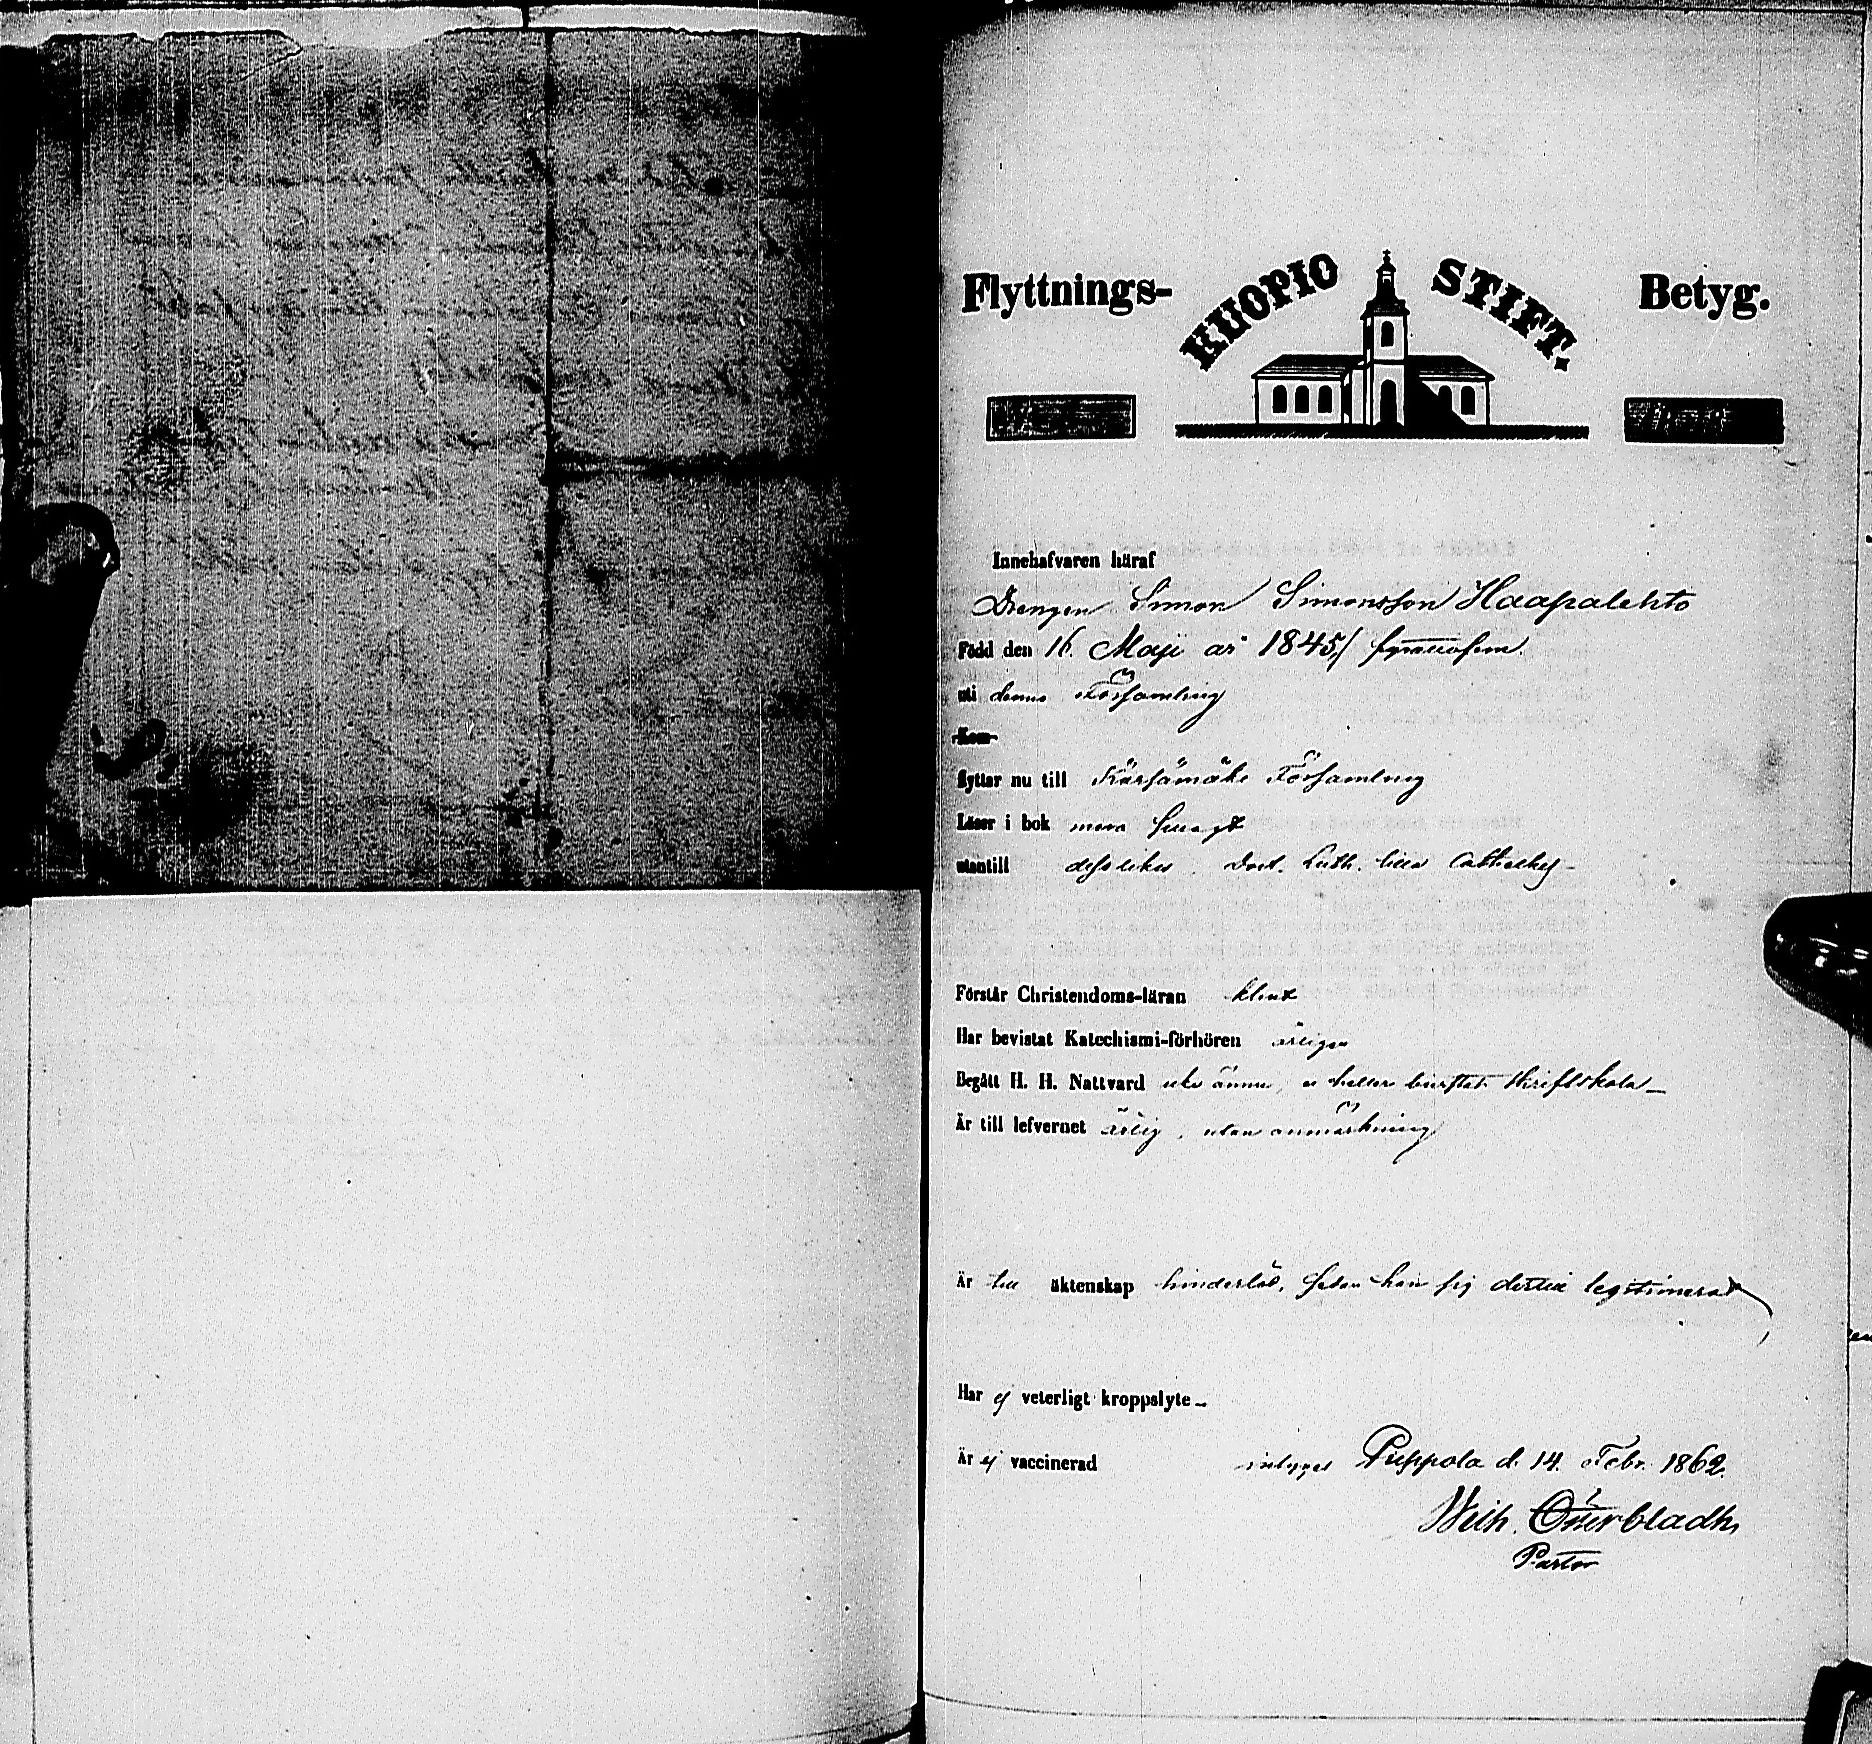 Flyttnings- KUOPIO STIFT. Betyg.
Innehafvaren häraf
Drengen Simon Simonsson Haapalehto
Född den 16. Maji år 1845,/ fyratiofem.
uti denna Församling
Kom
flyttar nu till Kärsämäki Församling
Läser i bok
utantill dessлikes Doct. Luth. lilla Catheches
Förstår Christendoms-läran klent
Har bevistat Katechismi-förhören årligen
Begått H. H. Nattvard icke ännu, ej heller bevistat skriftskola
Är till lefvernet ärlig, utan anmärkning
Är till äktenskap hinderlös, sedan han sig dertill legitimerat
Har ej veterligt kroppslyte
Är ej vaccinerad intygas Pippola d. 14. Febr. 1862.
Wilh. Öfverbladh,
Pastor